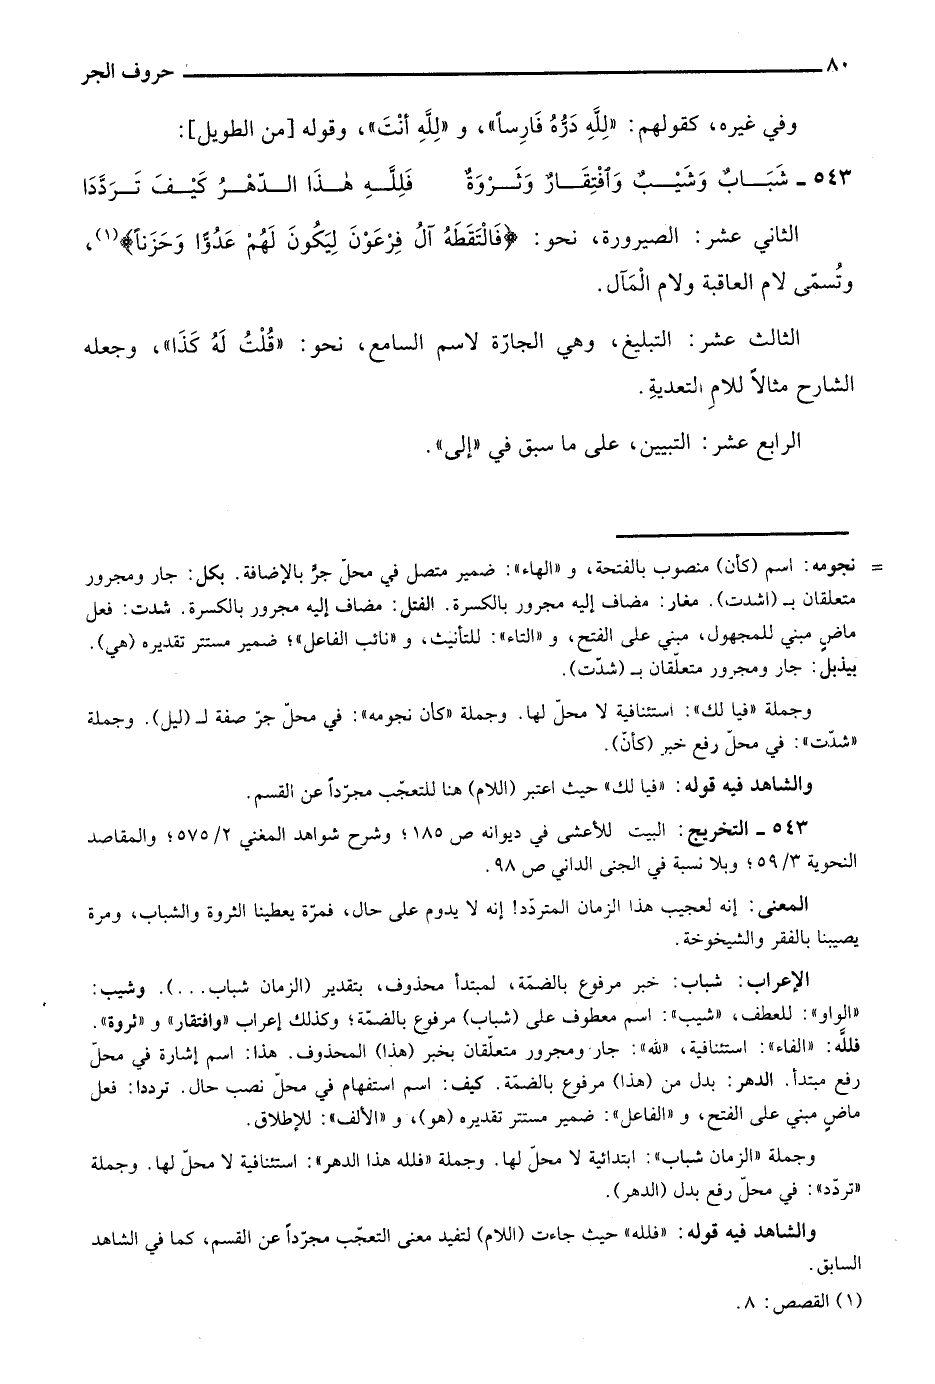 ٨٠ حروف الجر
وفي غيره، كقولهم: «لِلَّهِ دَرُّهُ فَارِساً»، و «لِلَّهِ أَنْتَ»، وقوله [من الطويل]:
٥٤٣ ـ شَبَـابٌ وَشَيْـبٌ وَٱفْتِقَـارٌ وَثَـرْوَةٌ فَلِلَّـهِ هٰـذَا الـدَّهْـرُ كَيْـفَ تَـرَدَّدَا
الثاني عشر: الصيرورة، نحو: ﴿فَالْتَقَطَهُ آلُ فِرْعَوْنَ لِيَكُونَ لَهُمْ عَدُوًّا وَحَزَناً﴾(١)،
وتُسمّى لام العاقبة ولام الْمَآل.
الثالث عشر: التبليغ، وهي الجارّة لاسم السامع، نحو: «قُلْتُ لَهُ كَذَا»، وجعله
الشارح مثالاً للامِ التعديةِ.
الرابع عشر: التبيين، على ما سبق في «إلى».
= نجومه: اسم (كأن) منصوب بالفتحة، و «الهاء»: ضمير متصل في محلّ جرّ بالإضافة. بكل: جار ومجرور
متعلقان بـ (اشدت). مغار: مضاف إليه مجرور بالكسرة. الفتل: مضاف إليه مجرور بالكسرة. شدت: فعل
ماضٍ مبني للمجهول، مبني على الفتح، و «التاء»: للتأنيث، و «نائب الفاعل»؛ ضمير مستتر تقديره (هي).
بيذبل: جار ومجرور متعلّقان بـ (شدّت).
وجملة «فيا لك»: استئنافية لا محلّ لها. وجملة «كأن نجومه»: في محلّ جرّ صفة لـ (ليل). وجملة
«شدّت»: في محلّ رفع خبر (كأنّ).
والشاهد فيه قوله: «فيا لك» حيث اعتبر (اللام) هنا للتعجّب مجرّداً عن القسم.
٥٤٣ ـ التخريج: البيت للأعشى في ديوانه ص ١٨٥؛ وشرح شواهد المغني ٢/ ٥٧٥؛ والمقاصد
النحوية ٣/ ٥٩؛ وبلا نسبة في الجنى الداني ص ٩٨.
المعنى: إنه لعجيب هذا الزمان المتردّد! إنه لا يدوم على حال، فمرّة يعطينا الثروة والشباب، ومرة
يصيبنا بالفقر والشيخوخة.
الإعراب: شباب: خبر مرفوع بالضمّة، لمبتدأ محذوف، بتقدير (الزمان شباب...). وشيب:
«الواو»: للعطف، «شيب»: اسم معطوف على (شباب) مرفوع بالضمّة؛ وكذلك إعراب «وافتقار» و «ثروة».
فللَّه: «الفاء»: استئنافية، «لله»: جار ومجرور متعلّقان بخبر (هذا) المحذوف. هذا: اسم إشارة في محلّ
رفع مبتدأ. الدهر: بدل من (هذا) مرفوع بالضمّة. كيف: اسم استفهام في محلّ نصب حال. ترددا: فعل
ماضٍ مبني على الفتح، و «الفاعل»: ضمير مستتر تقديره (هو)، و «الألف»: للإطلاق.
وجملة «الزمان شباب»: ابتدائية لا محلّ لها. وجملة «فلله هذا الدهر»: استئنافية لا محلّ لها. وجملة
«تردّد»: في محلّ رفع بدل (الدهر).
والشاهد فيه قوله: «فلله» حيث جاءت (اللام) لتفيد معنى التعجّب مجرّداً عن القسم، كما في الشاهد
السابق.
(١) القصص: ٨.